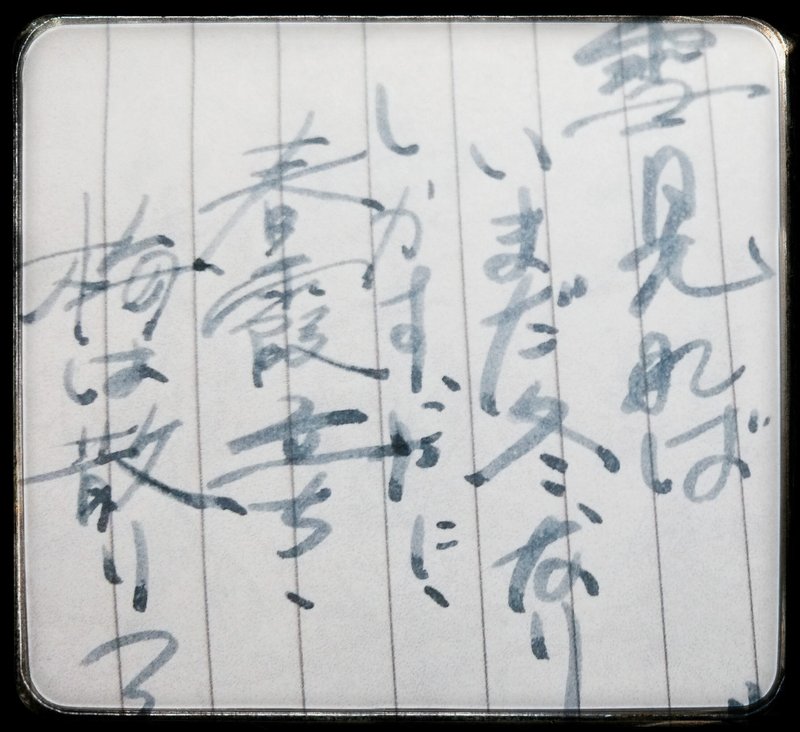 雪見れば
いまだ冬なり
しかすがに
春霞立ち、
梅は散りつ